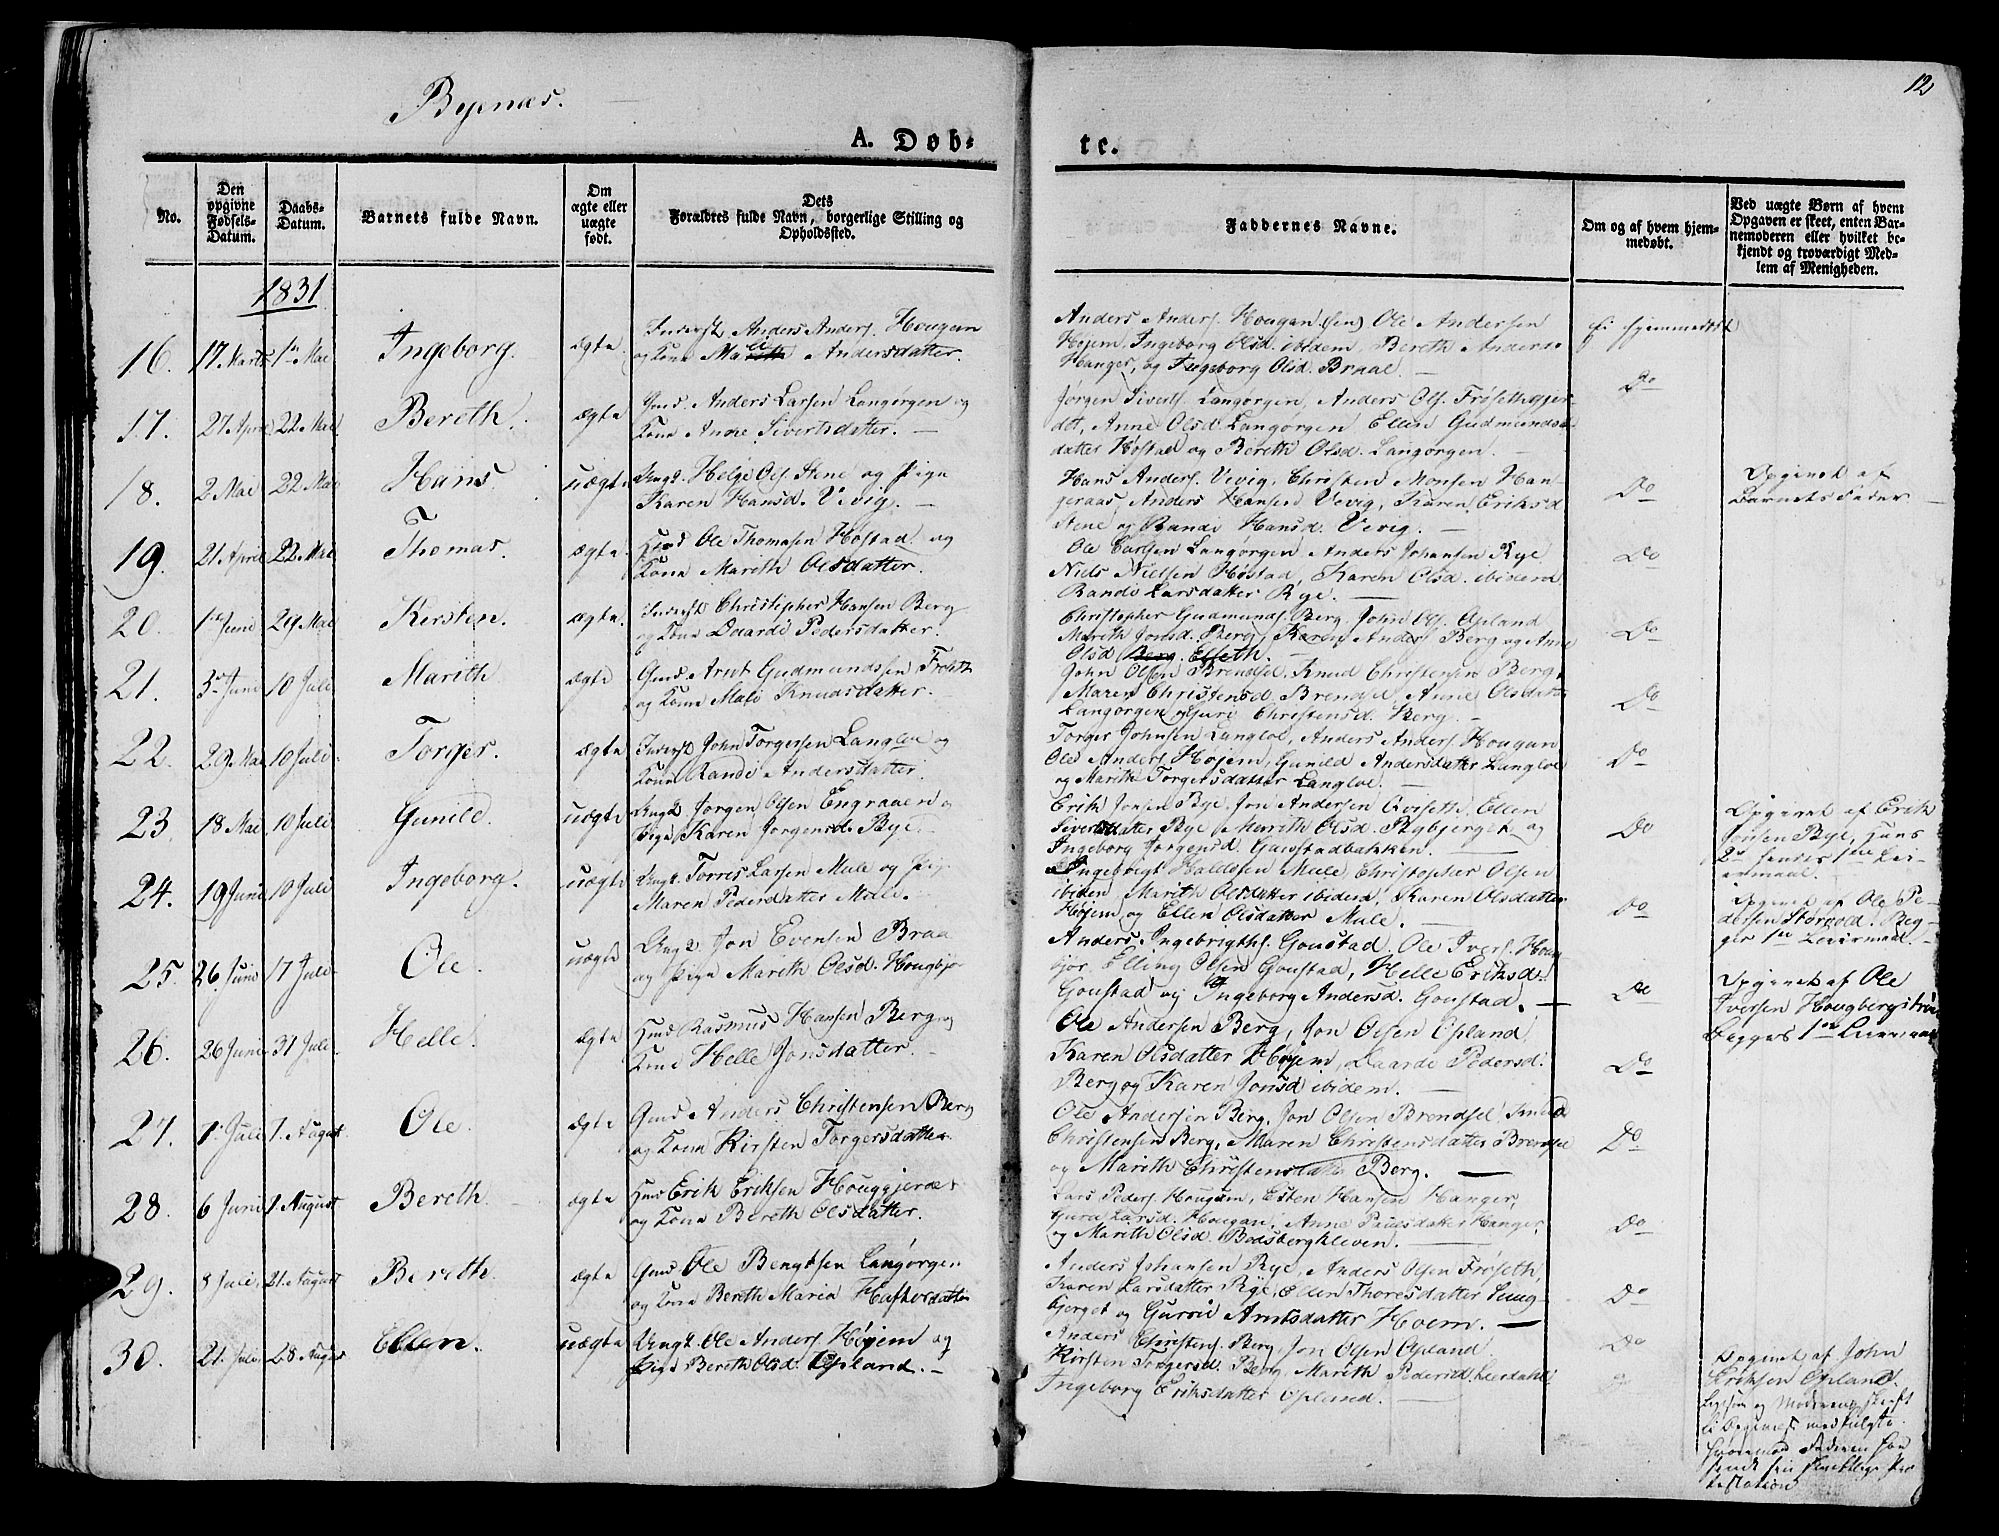 Byenæs.
12
A. Döb-
te.
No.
Den opgivne Fødsels-Datum.
Daabs-Datum.
Barnets fulde Navn.
Om ægte eller uægte født.
Dets Forældres fulde Navn, borgerlige Stilling og Opholdssted.
Faddernes Navne.
Om og af hvem hjemmedøbt.
Ved uægte Børn af hvem Opgaven er skeet, enten Barnemoderen eller hvilket bekjendt og troværdigt Medlem af Menigheden.
1831
16. 17 Marts 1ste Mai Ingeborg. ægte Inderst Anders Anders. Hougan
og Kone Mali Andersdatter.
Anders Anders. Hougan (sen) Ole Andersen
Højem, Ingeborg Olsd. ibidem, Bereth Anders.
Hanger, og Ingeborg Olsd. Braal.
ei hjemmedøbt
17. 27 April 22 Mai Bereth. ægte Gmd. Anders Larsen Langørgen og
Kone Anne Sivertsdatter.
Jørgen Sivertss. Langørgen, Anders Ols. Frøsethgjer-
det, Anne Olsd. Langørgen Ellen Gudmunds-
datter Høstad og Bereth Olsd. Langørgen.
Do
18. 2 Mai 22 Mai Hans. uægte Ungk. Helge Ols. Stene og Pige
Karen Hansd. Vevig.
Hans Anders. Vevig, Christen Monsen Han-
geraas, Anders Hansen Vevig, Karen Eriksd.
Stene og Randi Hansd. Vevig.
Do
Opgivet af
Barnets Fader
19. 21 April 22 Mai Thomas. ægte Hmd Ole Thomasen Høstad og
Kone Mareth Olsdatter.
Ole Carlsen Langørgen, Anders Johansen Rye
Niels Nielsen Høstad, Karen Olsd. ibidem
Randi Larsdatter Rye.
Do
20. 1ste Juni 29 Mai Kersten. ægte. Inderst Christopher Hansen Berg
og Kone Daardi Pedersdatter.
Christopher Gudmunds. Berg, John Ols. Opland
Mareth Jonsd. Berg, Karen Anders. Berg og Anne
Olsd. Berg. Elseth.
Do
21. 3die Juni 10 Juli Marith ægte Gmd Arnt Gudmundssen Frøseth
og Kone Mali Knudsdatter.
John Olsen Brendsel. Knud Christensen Berg,
Maren Christensd. Brendsel, Anne Olsdat.
Langørgen og Guri Christensd. Berg.
Do
22. 29 Mai 10 Juli Torger. ægte Inderst John Torgersen Langloe og
Kone Randi Andersdatter.
Torger Johnsen Langloe, Anders Anders. Hougan
Ole Anders. Højem, Gunild Andersdatter Langloe
og Mareth Torgersdatter Langloe.
Do
23. 18 Mai 10 Juli Gunild. uægte Ungk. Jørgen Olsen Engraaen og
Pige Karen Jørgensd. Rye.
Erik Jonsen Rye. Jon Andersen Qviseth, Ellen
Sivertsdatter Rye, Mareth Olsd. Rybjerget og
Ingeborg Jørgensd. Gaustadbakken.
Do
Opgivet af Erik
Jonsen Rye, hans
2det hendes 1ste Lei-
ermaal.
24. 19 Juni 10 Juli Ingeborg. uægte Ungk. Torris Larsen Mule og Pige
Maren Pedersdatter Mule.
Ingebrigt Haldosen Mule Christopher Olsen
ibidem Mareth Olsdatter ibidem, Karen Olsdatter
Højem og Ellen Olsdatter Mule.
Do
Opgivet af Ole Pe-
dersen Storvold. Beg-
ges 1ste Leiermaal.
25. 26 Juni 17 Juli Ole. uægte Ungk. Jon Evensen Braa
og Pige Mareth Olsd. Hougbjør
Anders Ingebrigths. Goustad, Ole Ivers. Houg-
bjør, Elling Olsen Goustad, Helle Eriksd.
Goustad og Ingeborg Andersd. Goustad.
Do
Opgivet af Ole
Iversen Hougberg
Begges 1ste Leiermaal
26. 26 Juni 31 Juli. Helle. ægte Hmd Rasmus Hansen Berg og
Kone Helle Jonsdatter.
Ole Andersen Berg, Jon Olsen Opland
Karen Olsdatter Højem, Daarde Pedersd.
Berg og Karen Jonsd ibidem.
Do
27. 1. Juli 7. August Ole. ægte Gmd Anders Christensen Berg
og Kone Kirsten Torgersdatter.
Ole Andersen Berg, Jon Olsen Brendsel, Knud
Christensen Berg, Maren Christensdatter Brendsel
og Mareth Christensdatter Berg.
Do
28. 6 Juni 7 August Bereth ægte Hmd Erik Eriksen Houggjerdet
og Kone Bereth Olsdatter.
Lars Peders. Hougum, Esten Hansen Hanger,
Guru Larsd. Hougan, Anne Paulsdatter Hanger,
og Mareth Olsd. Bodsbergkleven.
Do
29. 8 Juli 21. August Bereth ægte Gmd Ole Bengtsen Langørgen
og Kone Bereth Maria Hafholsdatter
Anders Johansen Rye, Anders Olsen Frøseth,
Karen Larsdatter Rye, Ellen Thoresdatter Ling-
bjerget og Gurui Arntsdatter Hoem.
Do
30. 21. Juli 28 August Ellen. uægte Ungk. Ole Anders. Højem og
Pige Bereth Olsd. Opland.
Anders Christens. Berg, Jon Olsen Opland
Kirsten Torgersd. Berg, Mareth Pedersd. Leerdahl,
Ingeborg Eriksdatter Opland.
Do
Opgivet af John
Eriksen Opland